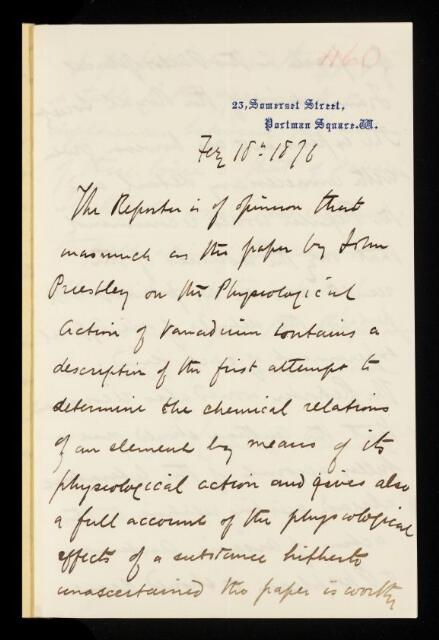 1160
23, Somerset Street,
Portman Square. W.
Feb 18th 1876
The Reporter is of opinion that
inasmuch as the paper by John
Priestley on the Physiological
Action of Vanadium contains a
description of the first attempt to
determine the chemical relations
of an element by means of its
physiological action and gives also
a full account of the physiological
effects of a substance hitherto
unascertained the paper is worthy